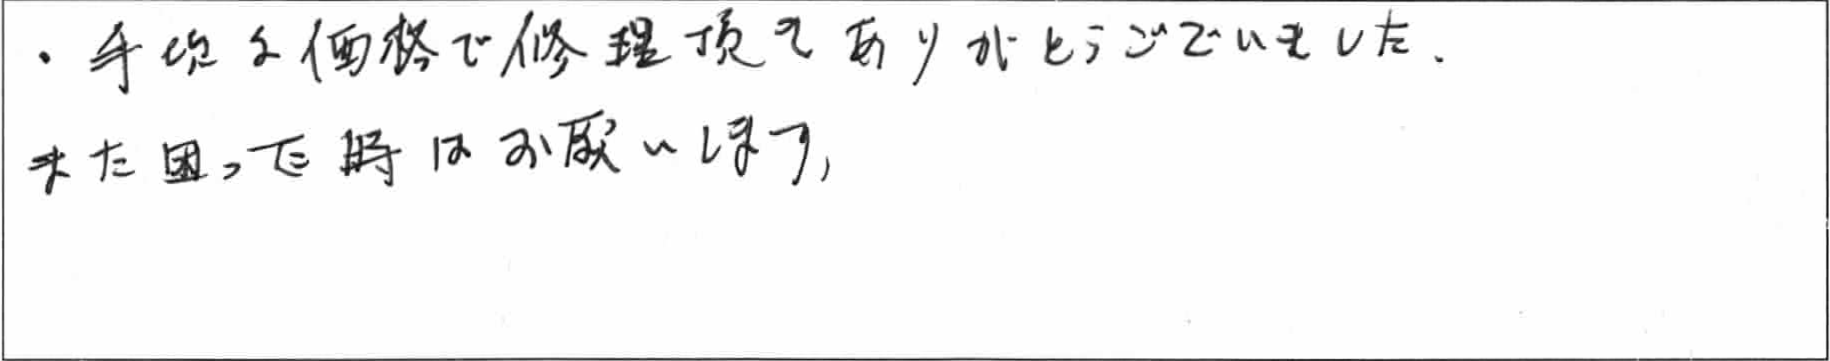 ・手頃な価格で修理頂きありがとうございました.
また困った時はお願いします,